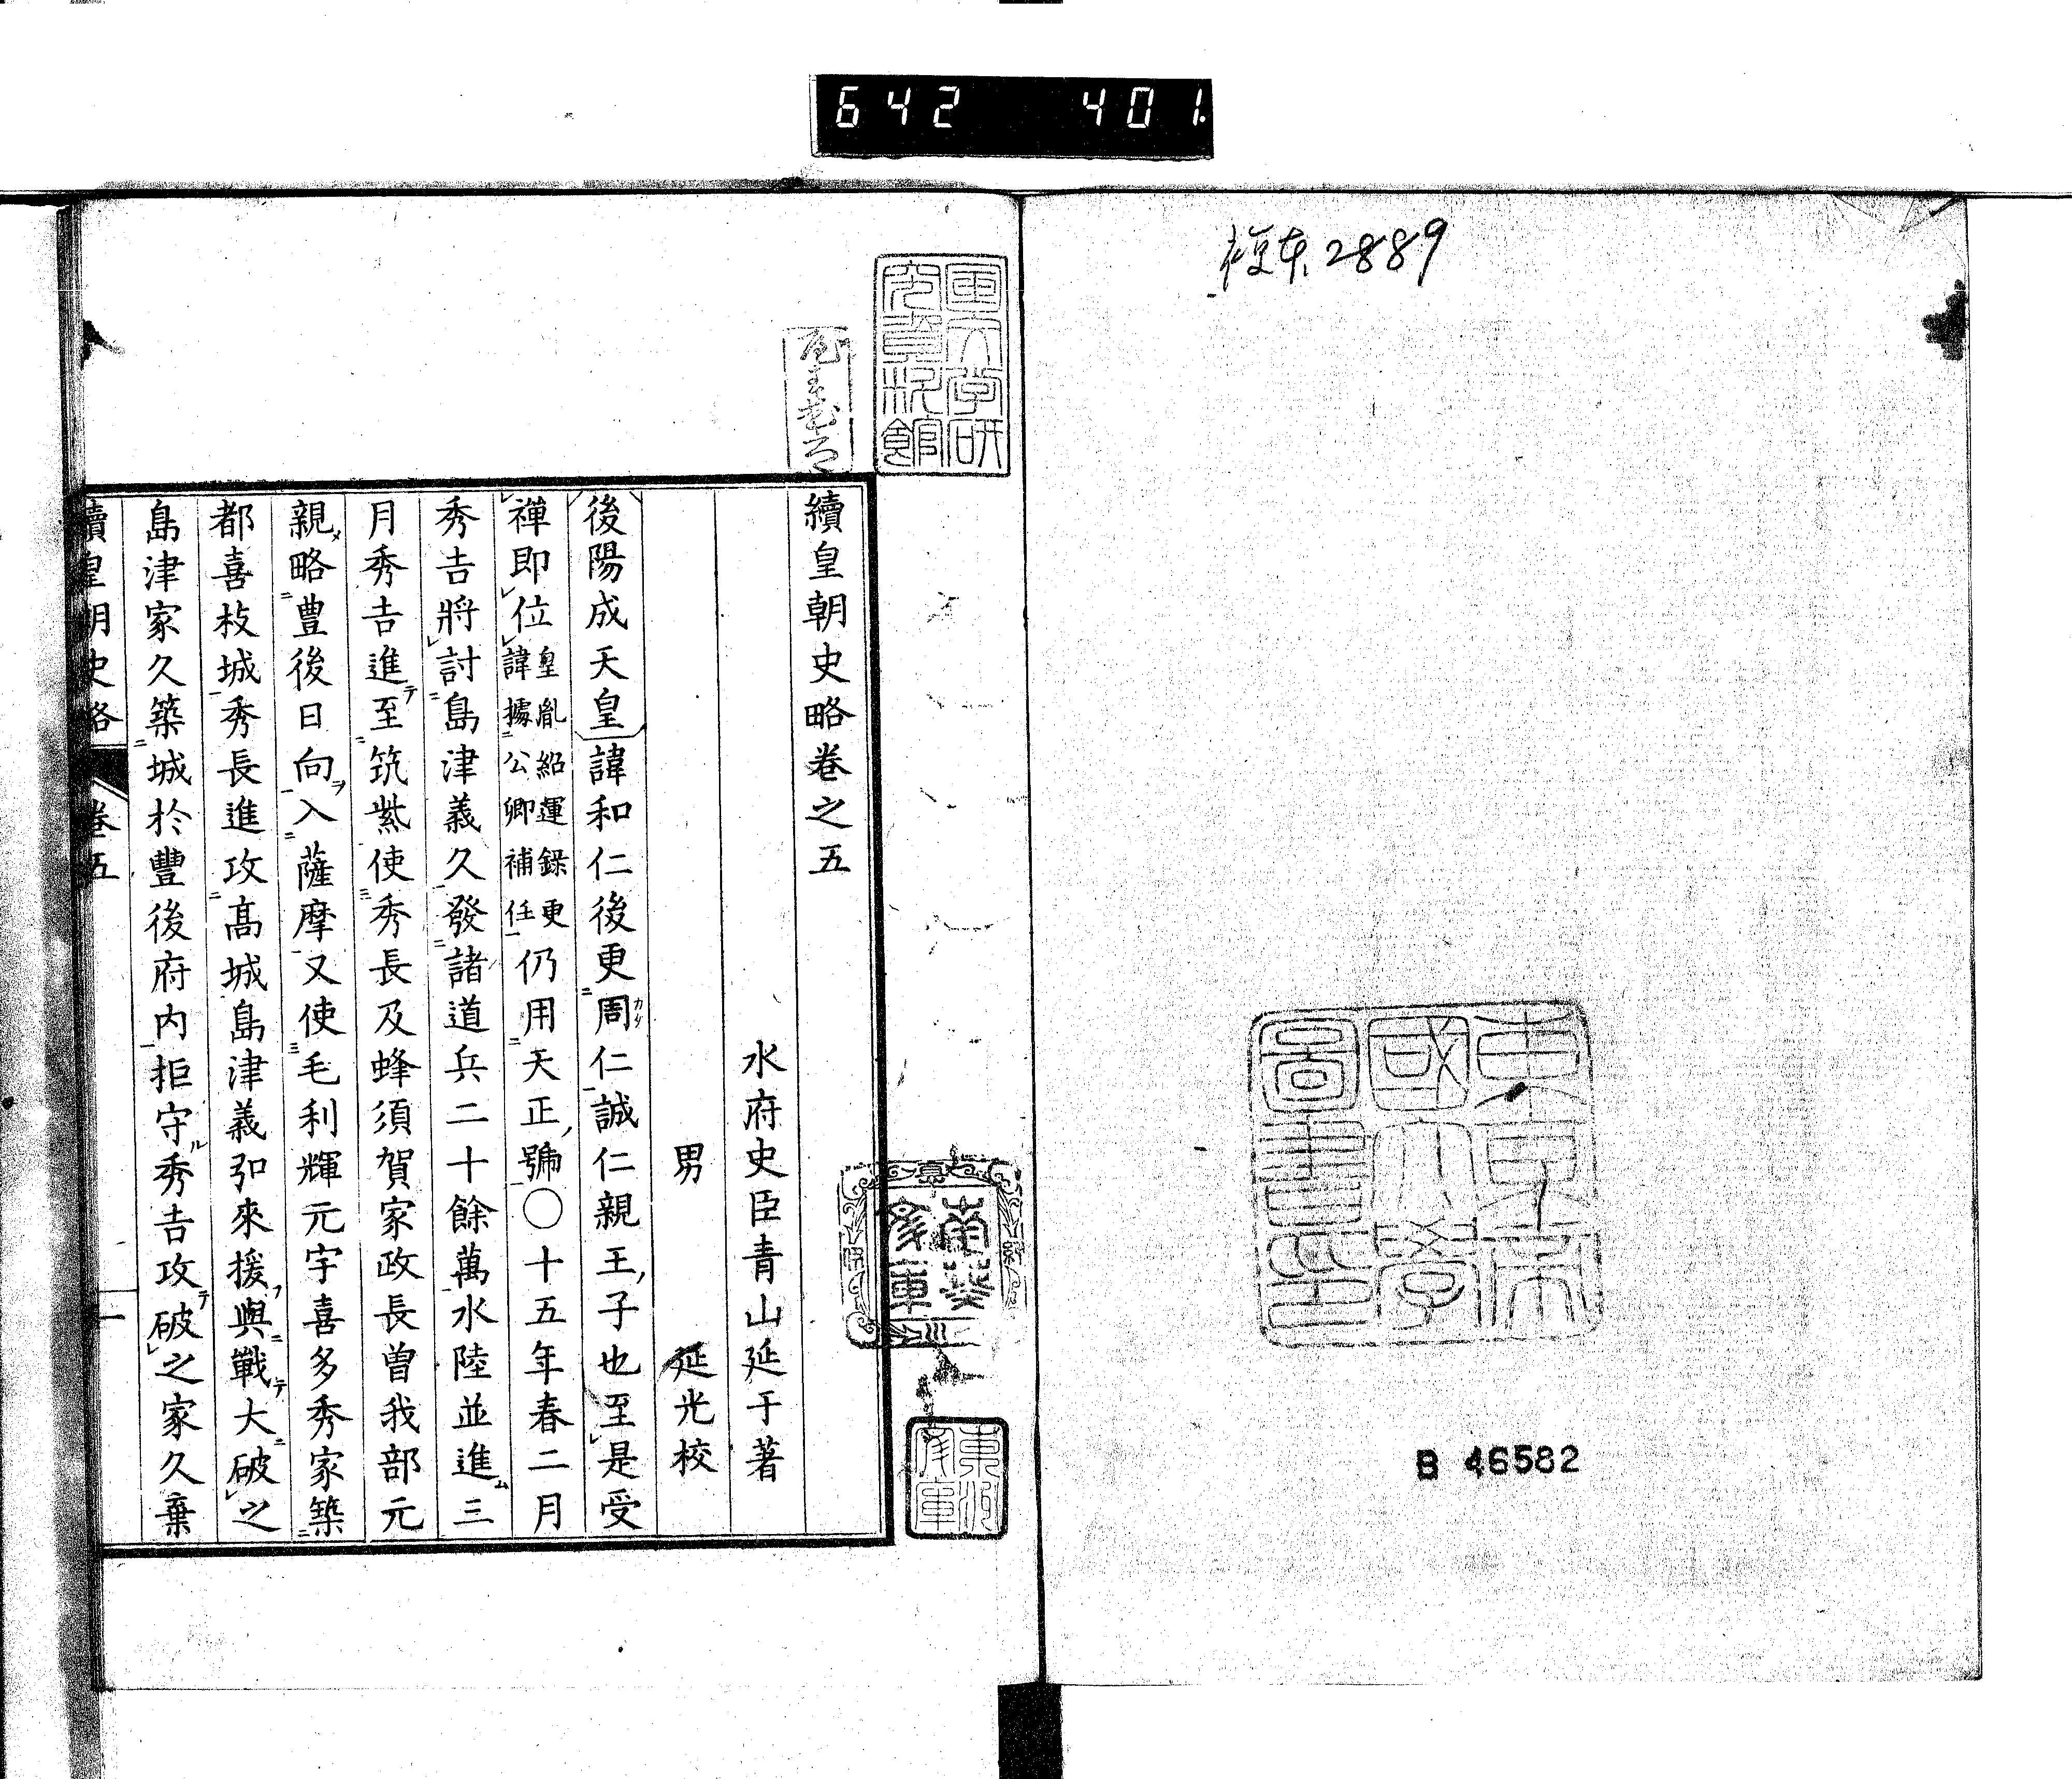 642 401
複本2889
東京帝
國大學
圖書印
B 46582
南葵
家庫
續皇朝史略卷之五
水府史臣青山延于著
男 延光校
後陽成天皇諱和仁後更周仁誠仁親王子也至是受
禪即位皇胤紹運錄更諱據公卿補任仍用天正號○十五年春二月
秀吉將討島津義久發諸道兵二十餘萬水陸並進三
月秀吉進至筑紫使秀長及蜂須賀家政長曽我部元
親略豊後日向入薩摩又使毛利輝元宇喜多秀家築
都喜枝城秀長進攻髙城島津義弘來援與戰大破之
島津家久築城於豐後府内拒守秀吉攻破之家久棄
續皇朝史略 卷五 一